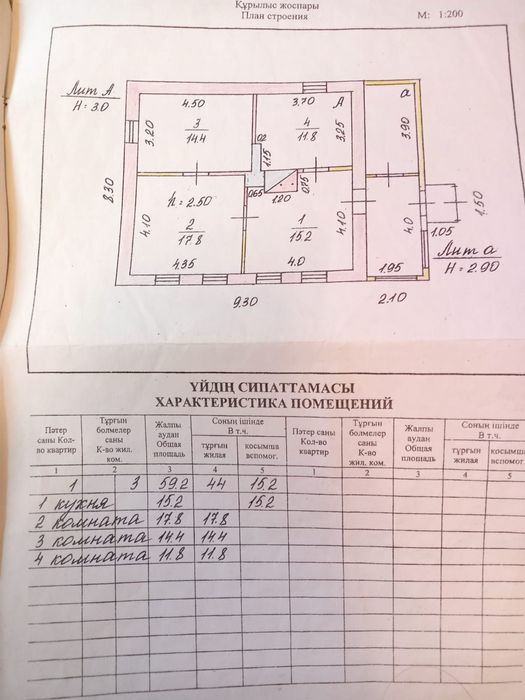 Құрылыс жоспары
План строения
М: 1:200
Лит А
Н = 3.0
4.50
3.70
А
а
3.20
3
14.4
4
11.8
3.25
3.90
0.2
1.15
0.65
1.20
0.75
8.30
h = 2.50
4.10
2
17.8
1
15.2
4.10
4.0
1.50
1.05
4.35
4.0
1.95
Лит а
Н = 2.90
9.30
2.10
ҮЙДІҢ СИПАТТАМАСЫ
ХАРАКТЕРИСТИКА ПОМЕЩЕНИЙ
Пәтер саны Кол-во квартир
Тұрғын бөлмелер саны К-во жил. ком.
Жалпы аудан Общая площадь
Соның ішінде В т.ч.
тұрғын жилая
қосымша вспомог.
Пәтер саны Кол-во квартир
Тұрғын бөлмелер саны К-во жил. ком.
Жалпы аудан Общая площадь
Соның ішінде В т.ч.
тұрғын жилая
қосымша вспомог.
1 2 3 4 5 1 2 3 4 5
1 3 59.2 44 15.2
1 кухня 15.2 15.2
2 комната 17.8 17.8
3 комната 14.4 14.4
4 комната 11.8 11.8